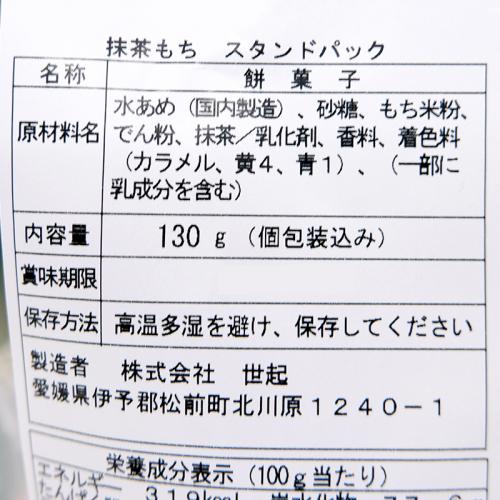 抹茶もち　スタンドパック
名称　餅菓子
原材料名　水あめ（国内製造）、砂糖、もち米粉、
でん粉、抹茶／乳化剤、香料、着色料
（カラメル、黄４、青１）、（一部に
乳成分を含む）
内容量　130ｇ（個包装込み）
賞味期限
保存方法　高温多湿を避け、保存してください
製造者　株式会社　世起
愛媛県伊予郡松前町北川原１２４０－１
栄養成分表示（100g当たり）
エネルギー　319kcal